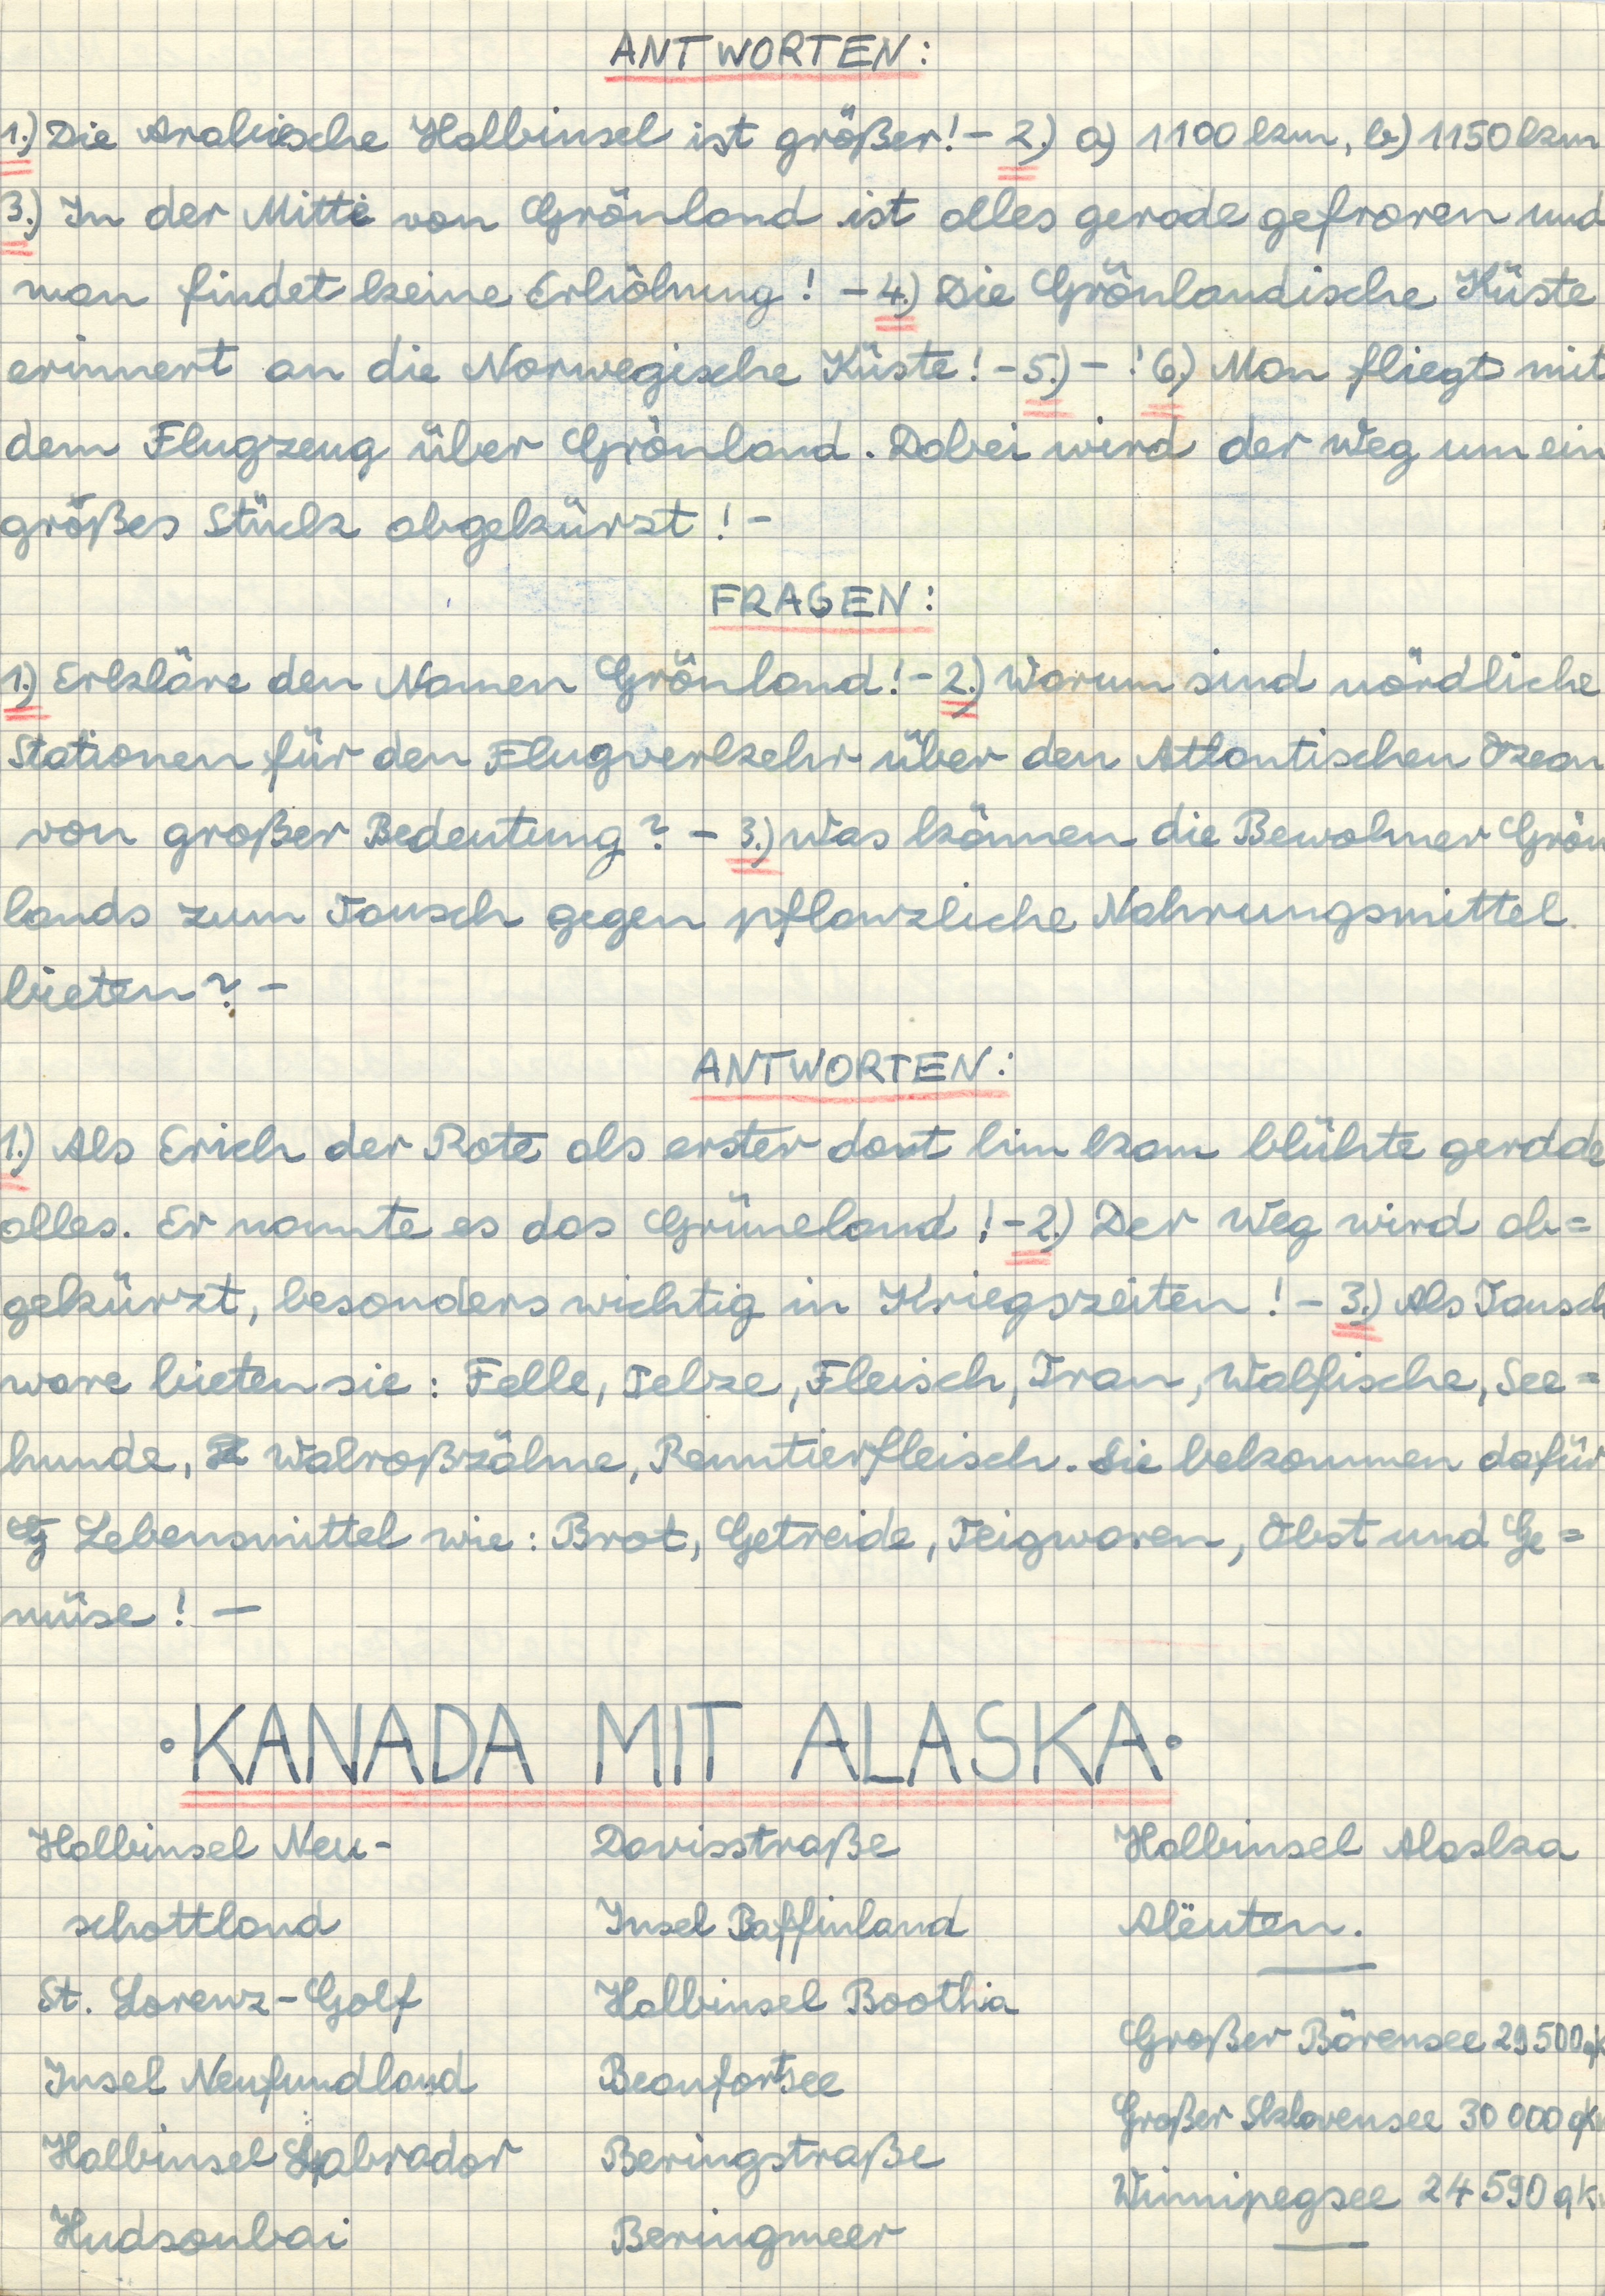 ANTWORTEN:
1.) Die Arabische Halbinsel ist größer! - 2.) a) 1100 km, b) 1150 km
3.) In der Mitte von Grönland ist alles gerade gefroren und
man findet keine Erhöhung! - 4.) Die Grönlandische Küste
erinnert an die Norwegische Küste! - 5.) - ! 6.) Man fliegt mit
dem Flugzeug über Grönland. Dabei wird der Weg um ein
größes Stück abgekürzt! -
FRAGEN:
1.) Erkläre den Namen Grönland! - 2.) Warum sind nördliche
Stationen für den Flugverkehr über den Atlantischen Ozean
von großer Bedeutung? - 3.) Was können die Bewohner Grön
lands zum Tausch gegen pflanzliche Nahrungsmittel
bieten? -
ANTWORTEN:
1.) Als Erich der Rote als erster dort hin kam blühte gerade
alles. Er nannte es das Grüneland! - 2.) Der Weg wird ab=
gekürzt, besonders wichtig in Kriegszeiten! - 3.) Als Tausch
ware bieten sie: Felle, Pelze, Fleisch, Tran, Walfische, See=
hunde, Walroßzähne, Renntierfleisch. Sie bekommen dafür
Lebensmittel wie: Brot, Getreide, Teigwaren, Obst und Ge=
müse! -
·KANADA MIT ALASKA·
Halbinsel Neu-
schottland
St. Lorenz-Golf
Insel Neufundland
Halbinsel Labrador
Hudsonbai
Davisstraße
Insel Baffinland
Halbinsel Boothia
Beaufortsee
Beringstraße
Beringmeer
Halbinsel Alaska
Alëuten.
Großer Bärensee 29 500 qk
Großer Sklavensee 30 000 qk
Winnipegsee 24 590 qk